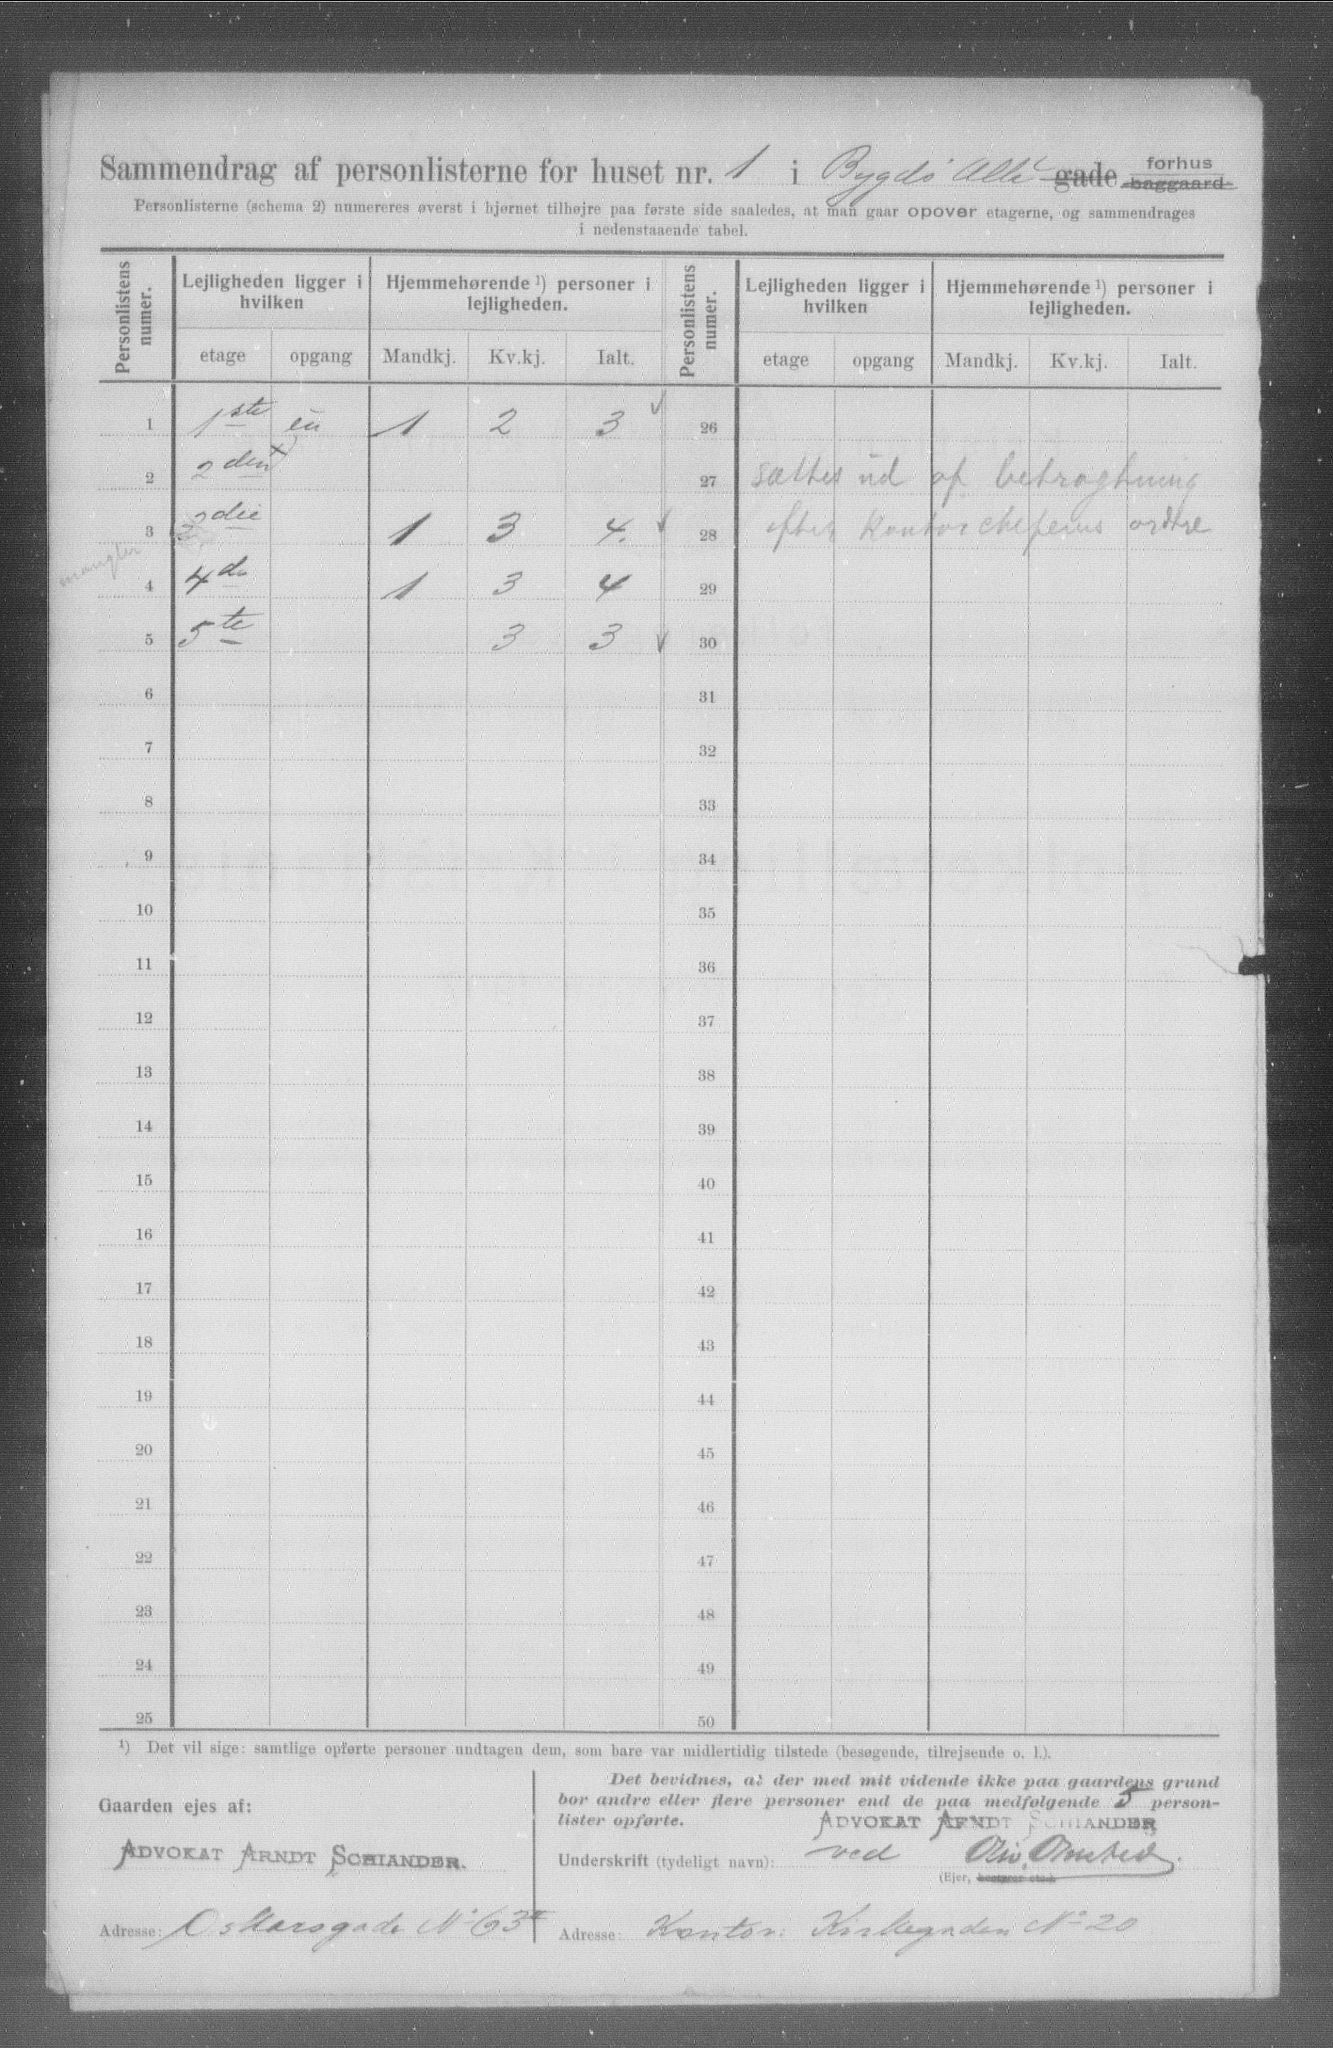 Sammendrag af personlisterne for huset nr. 1 i Bygdö Allé gade forhus baggaard
Personlisterne (schema 2) numereres øverst i hjørnet tilhøjre paa første side saaledes, at man gaar opover etagerne, og sammendrages
i nedenstaaende tabel.
Personlistens numer. Lejligheden ligger i hvilken Hjemmehørende ¹) personer i lejligheden. Personlistens numer. Lejligheden ligger i hvilken Hjemmehørende ¹) personer i lejligheden.
etage opgang Mandkj. Kv.kj. Ialt. etage opgang Mandkj. Kv.kj. Ialt.
1 1ste 1 2 3 26
2 2den 27 sættes ud af betragtning
3 3die 1 3 4. 28 efter kontorchefens ordre
mangler
4 4de 1 3 4 29
5 5te 3 3 30
6 31
7 32
8 33
9 34
10 35
11 36
12 37
13 38
14 39
15 40
16 41
17 42
18 43
19 44
20 45
21 46
22 47
23 48
24 49
25 50
¹) Det vil sige: samtlige opførte personer undtagen dem, som bare var midlertidig tilstede (besøgende, tilrejsende o. l.).
Gaarden ejes af:
ADVOKAT ARNDT SCHIANDER.
Adresse: Oskarsgade No 63
Det bevidnes, at der med mit vidende ikke paa gaardens grund
bor andre eller flere personer end de paa medfølgende 5 person-
lister opførte. ADVOKAT ARNDT SCHIANDER
Underskrift (tydeligt navn): ved
(Ejer,
Adresse: Kontor: Kirkegaden No 20